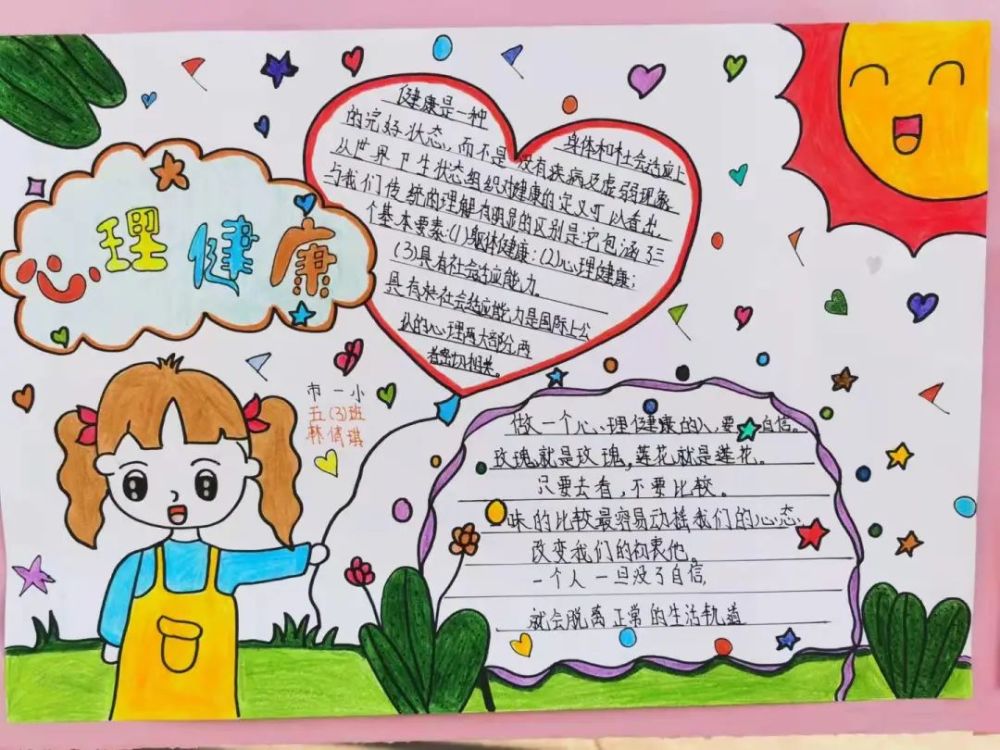 心理健康
健康是一种
身体和社会适应上
的完好状态，而不是没有疾病及虚弱现象
从世界卫生状态组织对健康的定义可以看出，
与我们传统的理解有明显的区别是它包涵了三
个基本要素：(1)躯体健康：(2)心理健康；
(3)具有社会适应能力。
具有社会适应能力是国际上公
认的心理两大部分，两
者密切相关。
市一小
五(3)班
林倩琪
做一个心理健康的人，要自信。
玫瑰就是玫瑰，莲花就是莲花。
只要去看，不要比较。
味的比较最容易动摇我们的心态，
改变我们的初衷他。
一个人一旦没了自信，
就会脱离正常的生活轨道